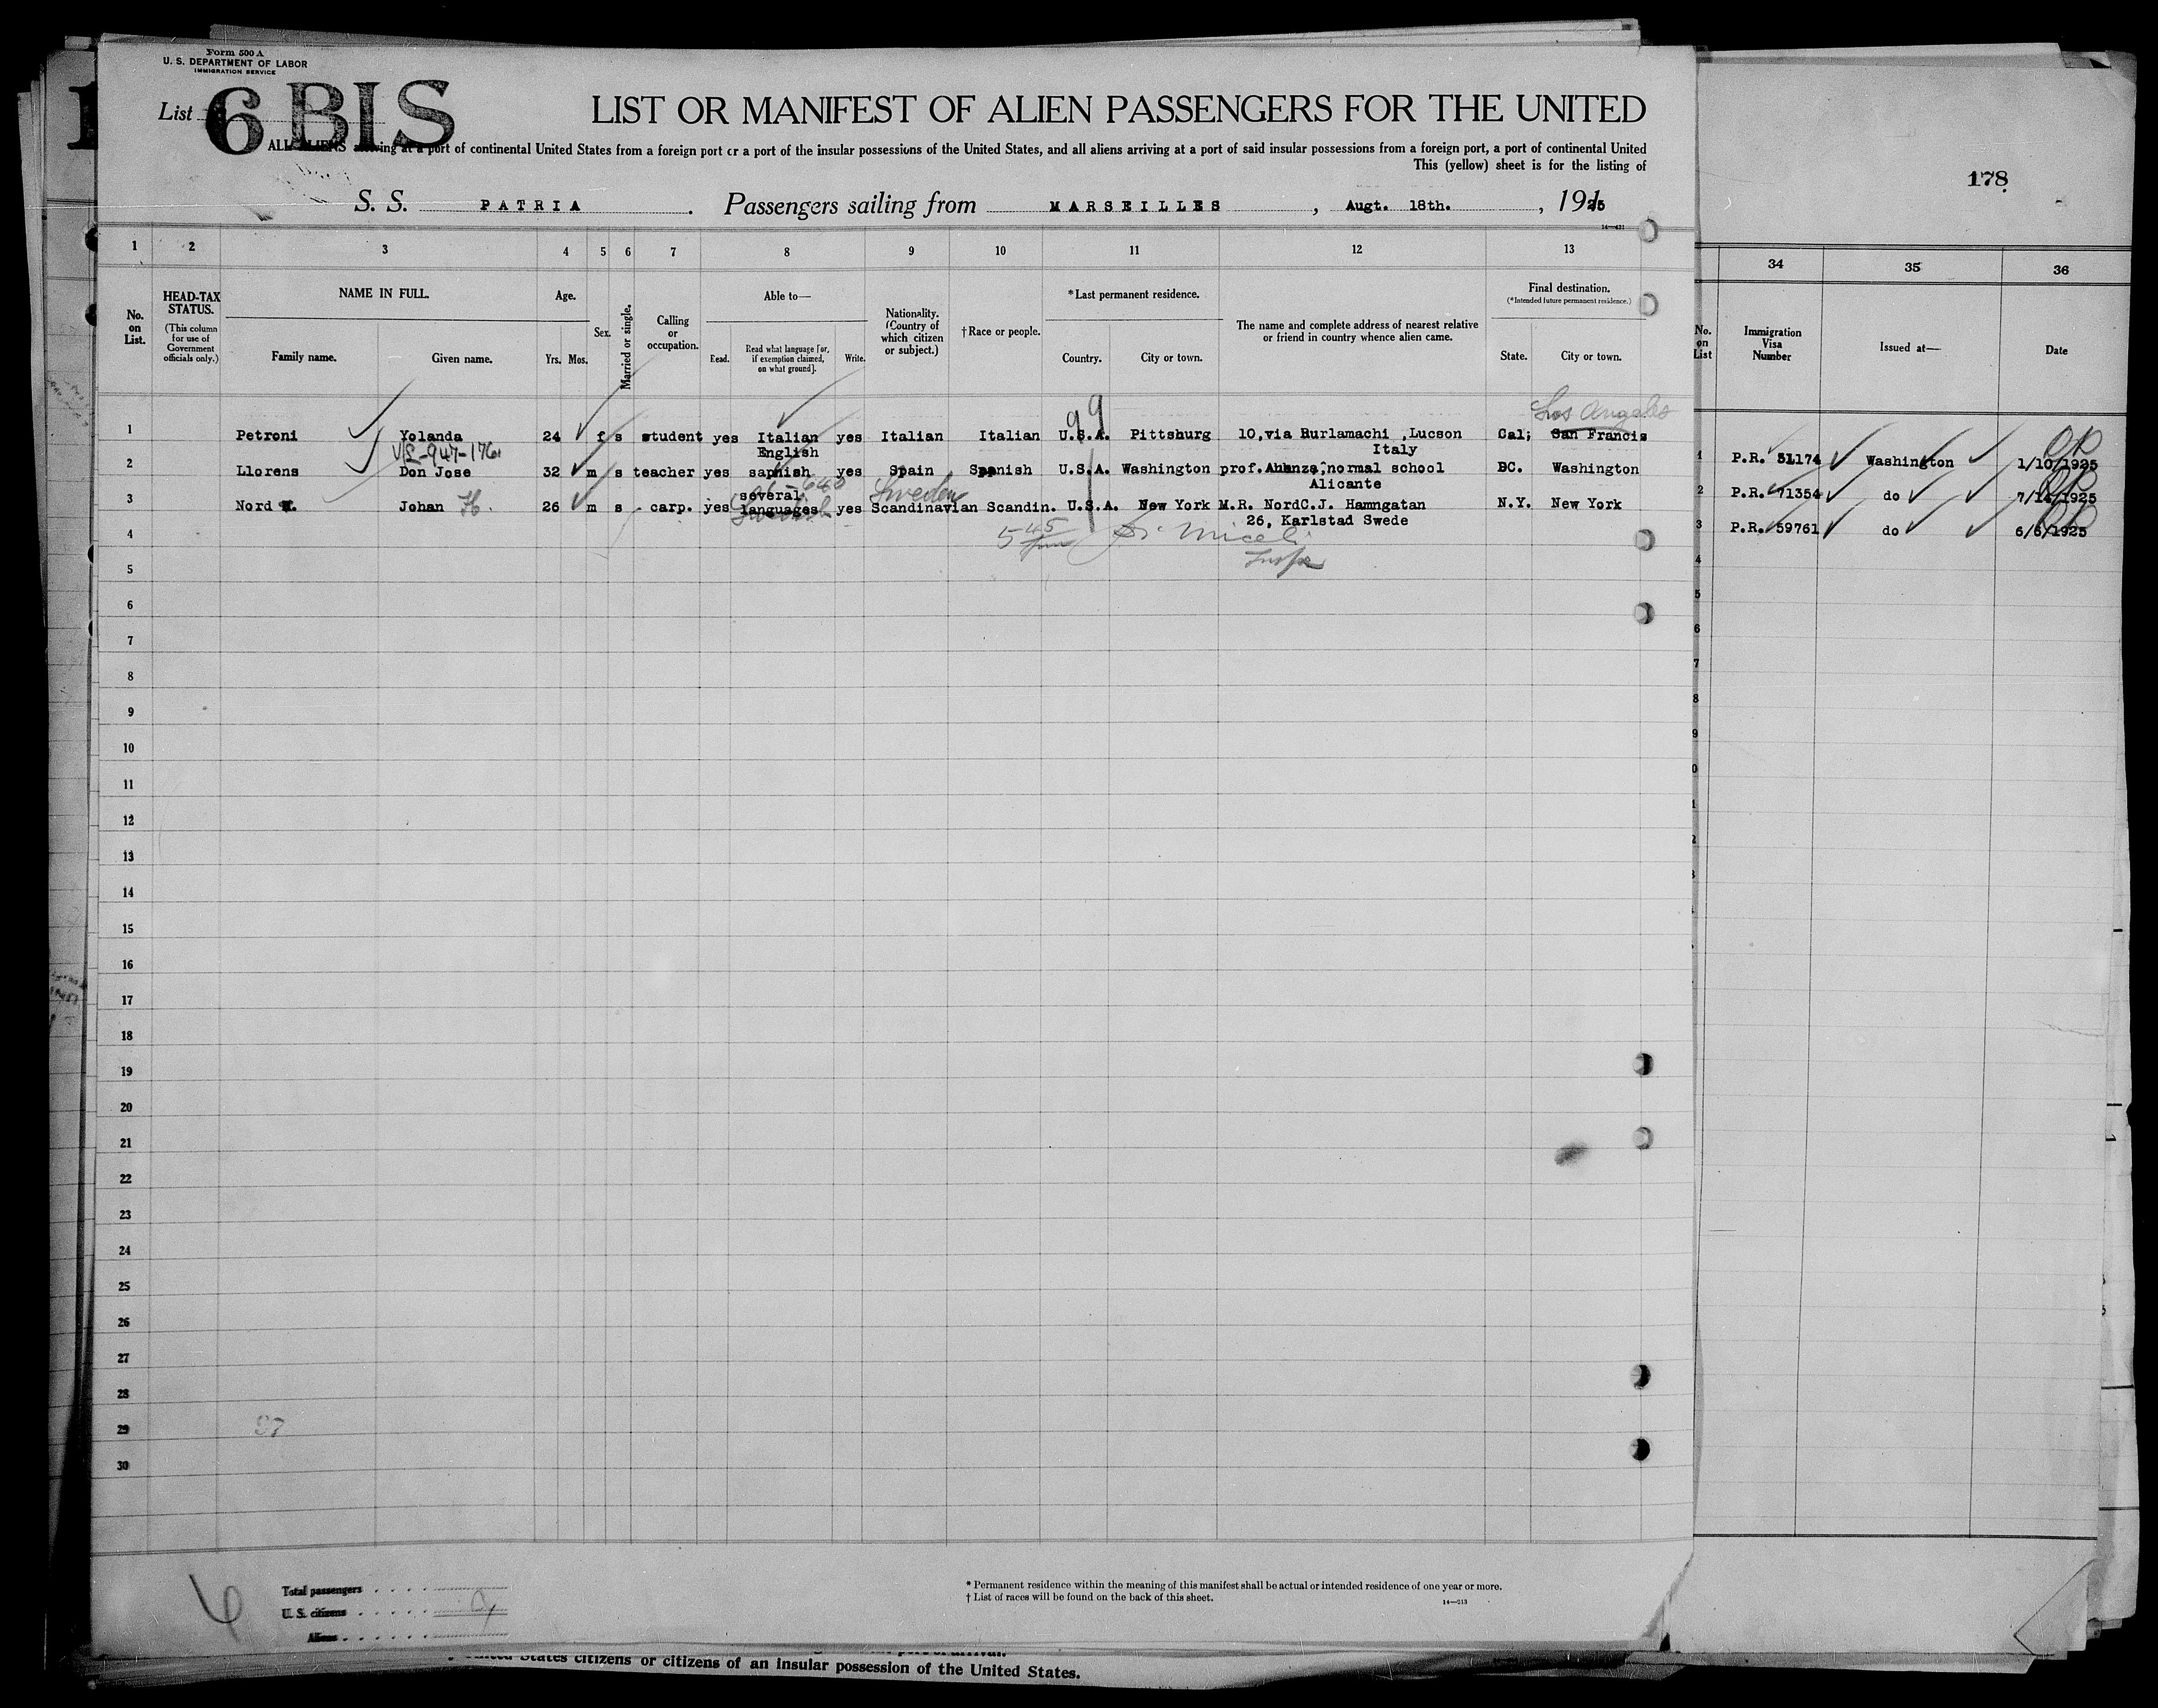 Form 500 A
U. S. DEPARTMENT OF LABOR
IMMIGRATION SERVICE
List 6 BIS
LIST OR MANIFEST OF ALIEN PASSENGERS FOR THE UNITED
ALL ALIENS arriving at a port of continental United States from a foreign port or a port of the insular possessions of the United States, and all aliens arriving at a port of said insular possessions from a foreign port, a port of continental United
This (yellow) sheet is for the listing of
S. S. PATRIA. Passengers sailing from MARSEILLES, Augt. 18th., 1925
178
1 2 3 4 5 6 7 8 9 10 11 12 13
34 35 36
No. on List.
HEAD-TAX STATUS.
(This column for use of Government officials only.)
NAME IN FULL.
Family name. Given name.
Age.
Yrs. Mos.
Sex.
Married or single.
Calling or occupation.
Able to—
Read. Read what language [or, if exemption claimed, on what ground]. Write.
Nationality. (Country of which citizen or subject.)
†Race or people.
*Last permanent residence.
Country. City or town.
The name and complete address of nearest relative or friend in country whence alien came.
Final destination.
(*Intended future permanent residence.)
State. City or town.
No. on List
Immigration Visa Number
Issued at—
Date
Los Angeles
1 Petroni Yolanda 24 f s student yes Italian yes Italian Italian U.S.A. Pittsburg 10,via Burlamachi ,Lucson Cal; San Francis
99
VL-947-176
English
Italy
2 Llorens Don Jose 32 m s teacher yes sapnish yes Spain Spanish U.S.A. Washington prof. normal school DC. Washington
several
Sweden
Alicante
3 Nord Johan H. 26 m s carp. yes languages yes Scandinavian Scandin. U.S.A. New York M.R. NordC.J. Hamngatan N.Y. New York
Swedish
26, Karlstad Swede
5 45
Miceli
Insp
1 P.R. 51174 Washington 1/10/1925
OK
2 P.R. 71354 do 7/14/1925
OK
3 P.R. 59761 do 6/6/1925
OK
4
5
6
7
8
9
10
11
12
13
14
15
16
17
18
19
20
21
22
23
24
25
26
27
28
29
30
6
Total passengers
U. S. citizens
Aliens
* Permanent residence within the meaning of this manifest shall be actual or intended residence of one year or more.
† List of races will be found on the back of this sheet.
14—213
United States citizens or citizens of an insular possession of the United States.